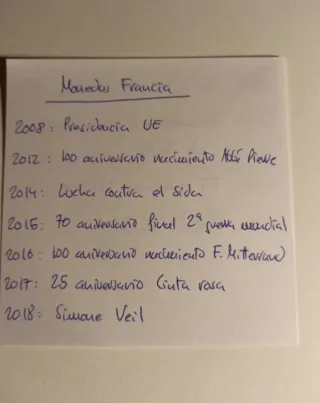 Monedas Francia
2008: Presidencia UE
2012: 100 aniversario nacimiento Abbé Pierre
2014: Lucha contra el Sida
2015: 70 aniversario final 2ª guerra mundial
2016: 100 aniversario nacimiento F. Mitterrand
2017: 25 aniversario Cinta rosa
2018: Simone Veil